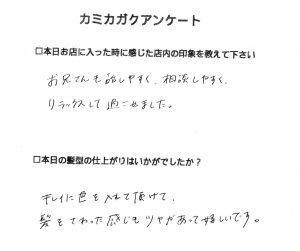 カミカガクアンケート
□本日お店に入った時に感じた店内の印象を教えて下さい
お兄さんも話しやすく、相談しやすく、
リラックスして過ごせました。
□本日の髪型の仕上がりはいかがでしたか？
キレイに色を入れて頂けて、
髪をさわった感じもツヤがあって嬉しいです。